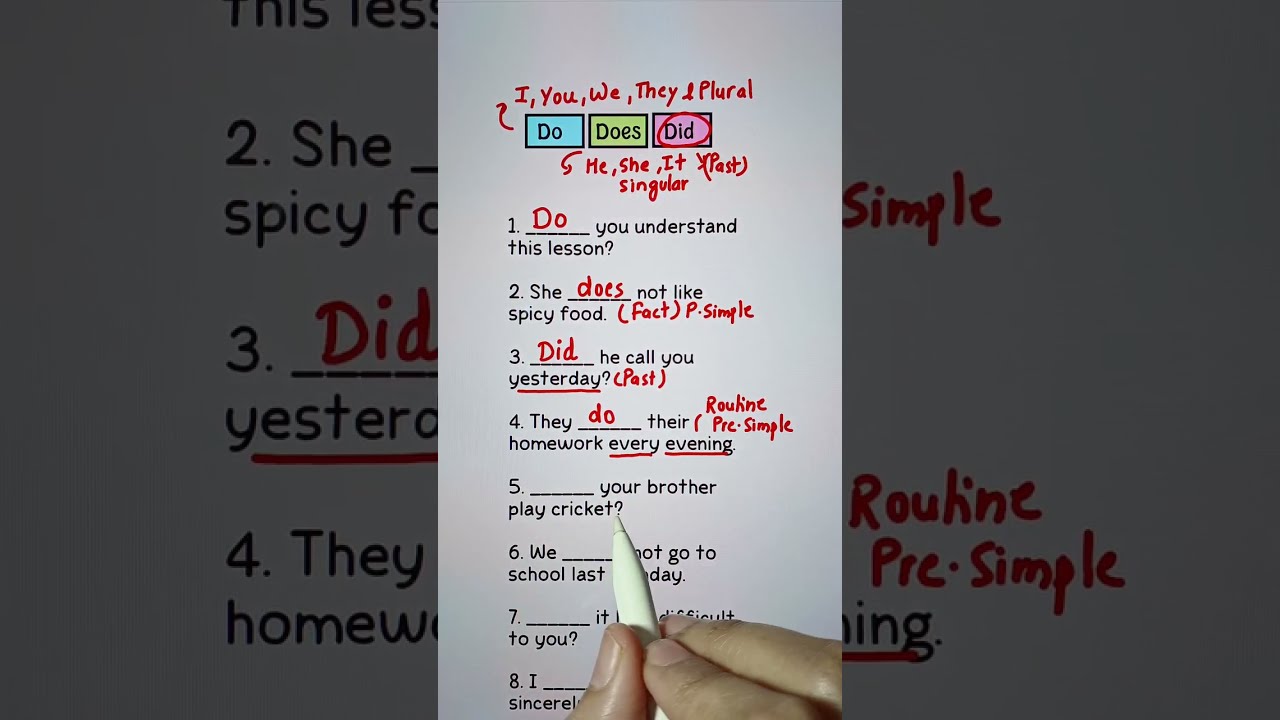 I, You, We, They & Plural
Do Does Did
He, She, It (Past)
singular
1. Do you understand
this lesson?
2. She does not like
spicy food. (Fact) P. Simple
3. Did he call you
yesterday? (Past)
Routine
4. They do their ( Pre. Simple
homework every evening.
5. ______ your brother
play cricket?
6. We ______ not go to
school last
7. ______ it difficult
to you?
8. I ____